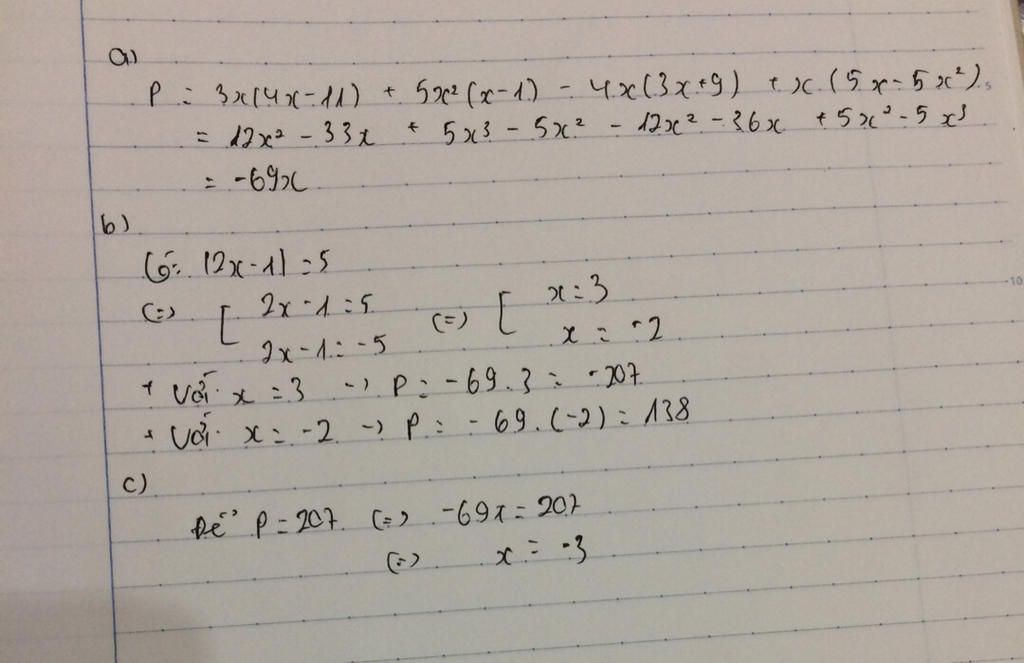 a)
P = 3x(4x-11) + 5x²(x-1) - 4x(3x+9) + x.(5x-5x²).
= 12x² - 33x + 5x³ - 5x² - 12x² - 36x + 5x² - 5x³
= -69x
b)
Có: |2x-1| = 5
(=) [ 2x-1 = 5 (=) [ x = 3
2x-1 = -5 x = -2
+ Với x = 3 -> P = -69.3 = -207
+ Với x = -2 -> P = -69.(-2) = 138
c)
Để P = 207 (=) -69x = 207
(=) x = -3
10